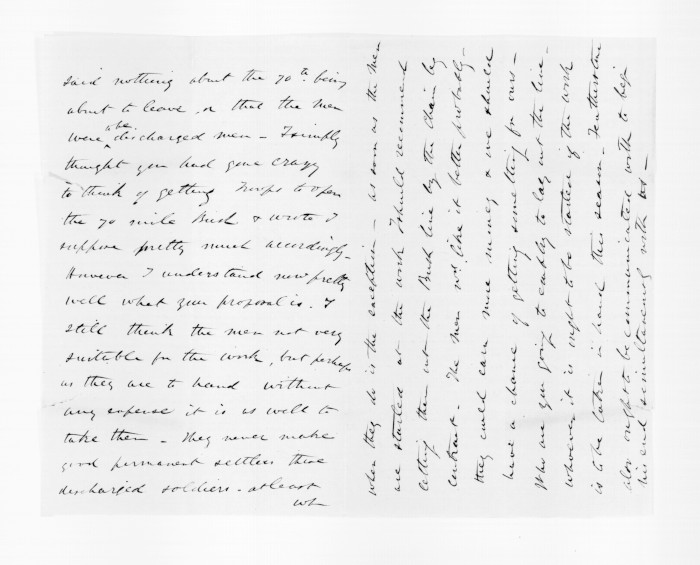 said nothing about the 70th being
about to leave, or that the men
were to be discharged men – I simply
thought you had gone crazy
to think of getting Troops to open
the 70 mile Bush & wrote I
suppose pretty much accordingly –
However I understand now pretty
well what your proposal is. I
still think the men not very
suitable for the work, but perhaps
as they are to hand without
any expense it is as well to
take them – They never make
good permanent settlers these
discharged soldiers – at least
wh
when they do is the exception – as soon as the men
are started at the work I should recommend
letting them cut the Bush line by the chain by
contract. The men wd. like it better probably –
they could earn more money & we should
have a chance of getting something for ours –
Who are you going to employ to lay out the line –
whoever it is ought to be started if the work
is to be taken in hand this season – Featherston
also ought to be communicated with to begin
his end simultaneously with us –